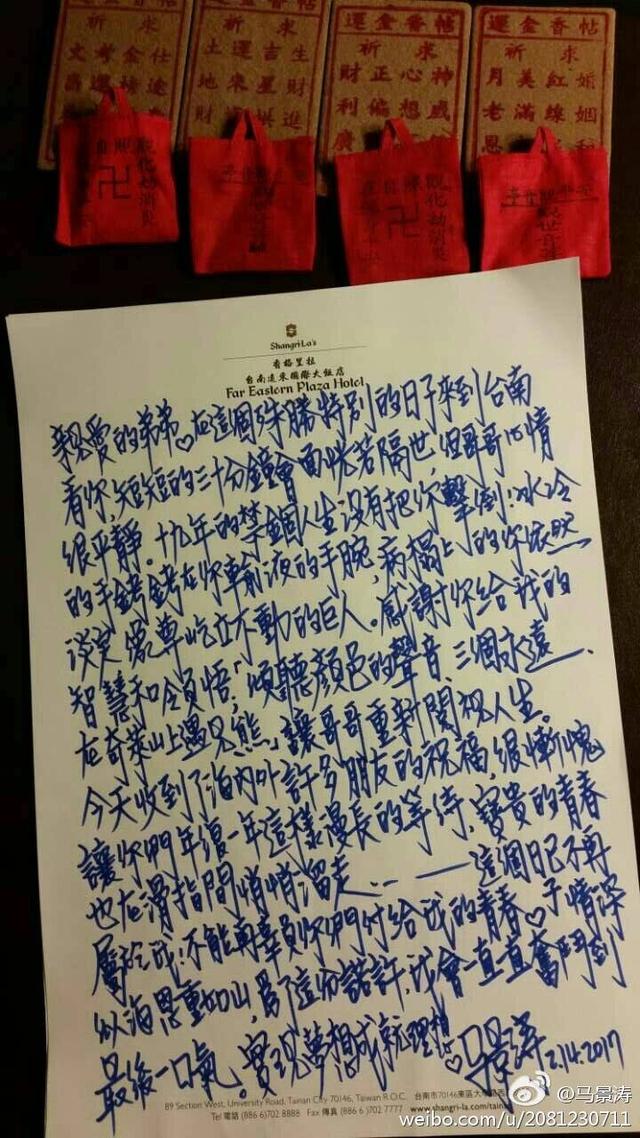 運金香帖
運金香帖
運金香帖
運金香帖
祈求
祈求
祈求
祈求
文考金仕
土運吉生
財正心神
月美紅婚
昌運榜途
地來星財
利偏想盛
老滿線姻
財
進
廣
恩
觀
化劫消災
卍
觀化劫消災
卍
Shangri-La's
香格里拉
台南遠東國際大飯店
Far Eastern Plaza Hotel
親愛的弟弟♡在這個殊勝特別的日子來到台南
看你,短短的三十分鐘會面恍若隔世,但哥哥心情
很平靜。十九年的禁錮人生沒有把你擊倒!冰冷
的手銬銬在你輸液的手腕,病榻上的你依然
談笑像尊屹立不動的巨人。感謝你給我的
智慧和領悟,「傾聽顏色的聲音、三個永遠、
在奇萊山上遇見熊」讓哥哥重新閱視人生。
今天收到了海內外許多朋友的祝福,很慚愧
讓你們年復一年這樣漫長的等待,寶貴的青春
也在滑指間悄悄溜走...——這個日已不再
屬於我!不能再辜負你們付給我的青春♡于情深
似海恩重如山,為了這份諾許,我會一直直奮鬥到
最後一口氣。實現夢想成就理想♡馬景濤 2.14.2017
89 Section West, University Road, Tainan City 70146, Taiwan R.O.C. 台南市70146東區大學路西段
Tel 電話 (886 6)702 8888 Fax 傳真 (886 6)702 7777 www.shangri-la.com/tain
@马景涛
weibo.com/u/2081230711